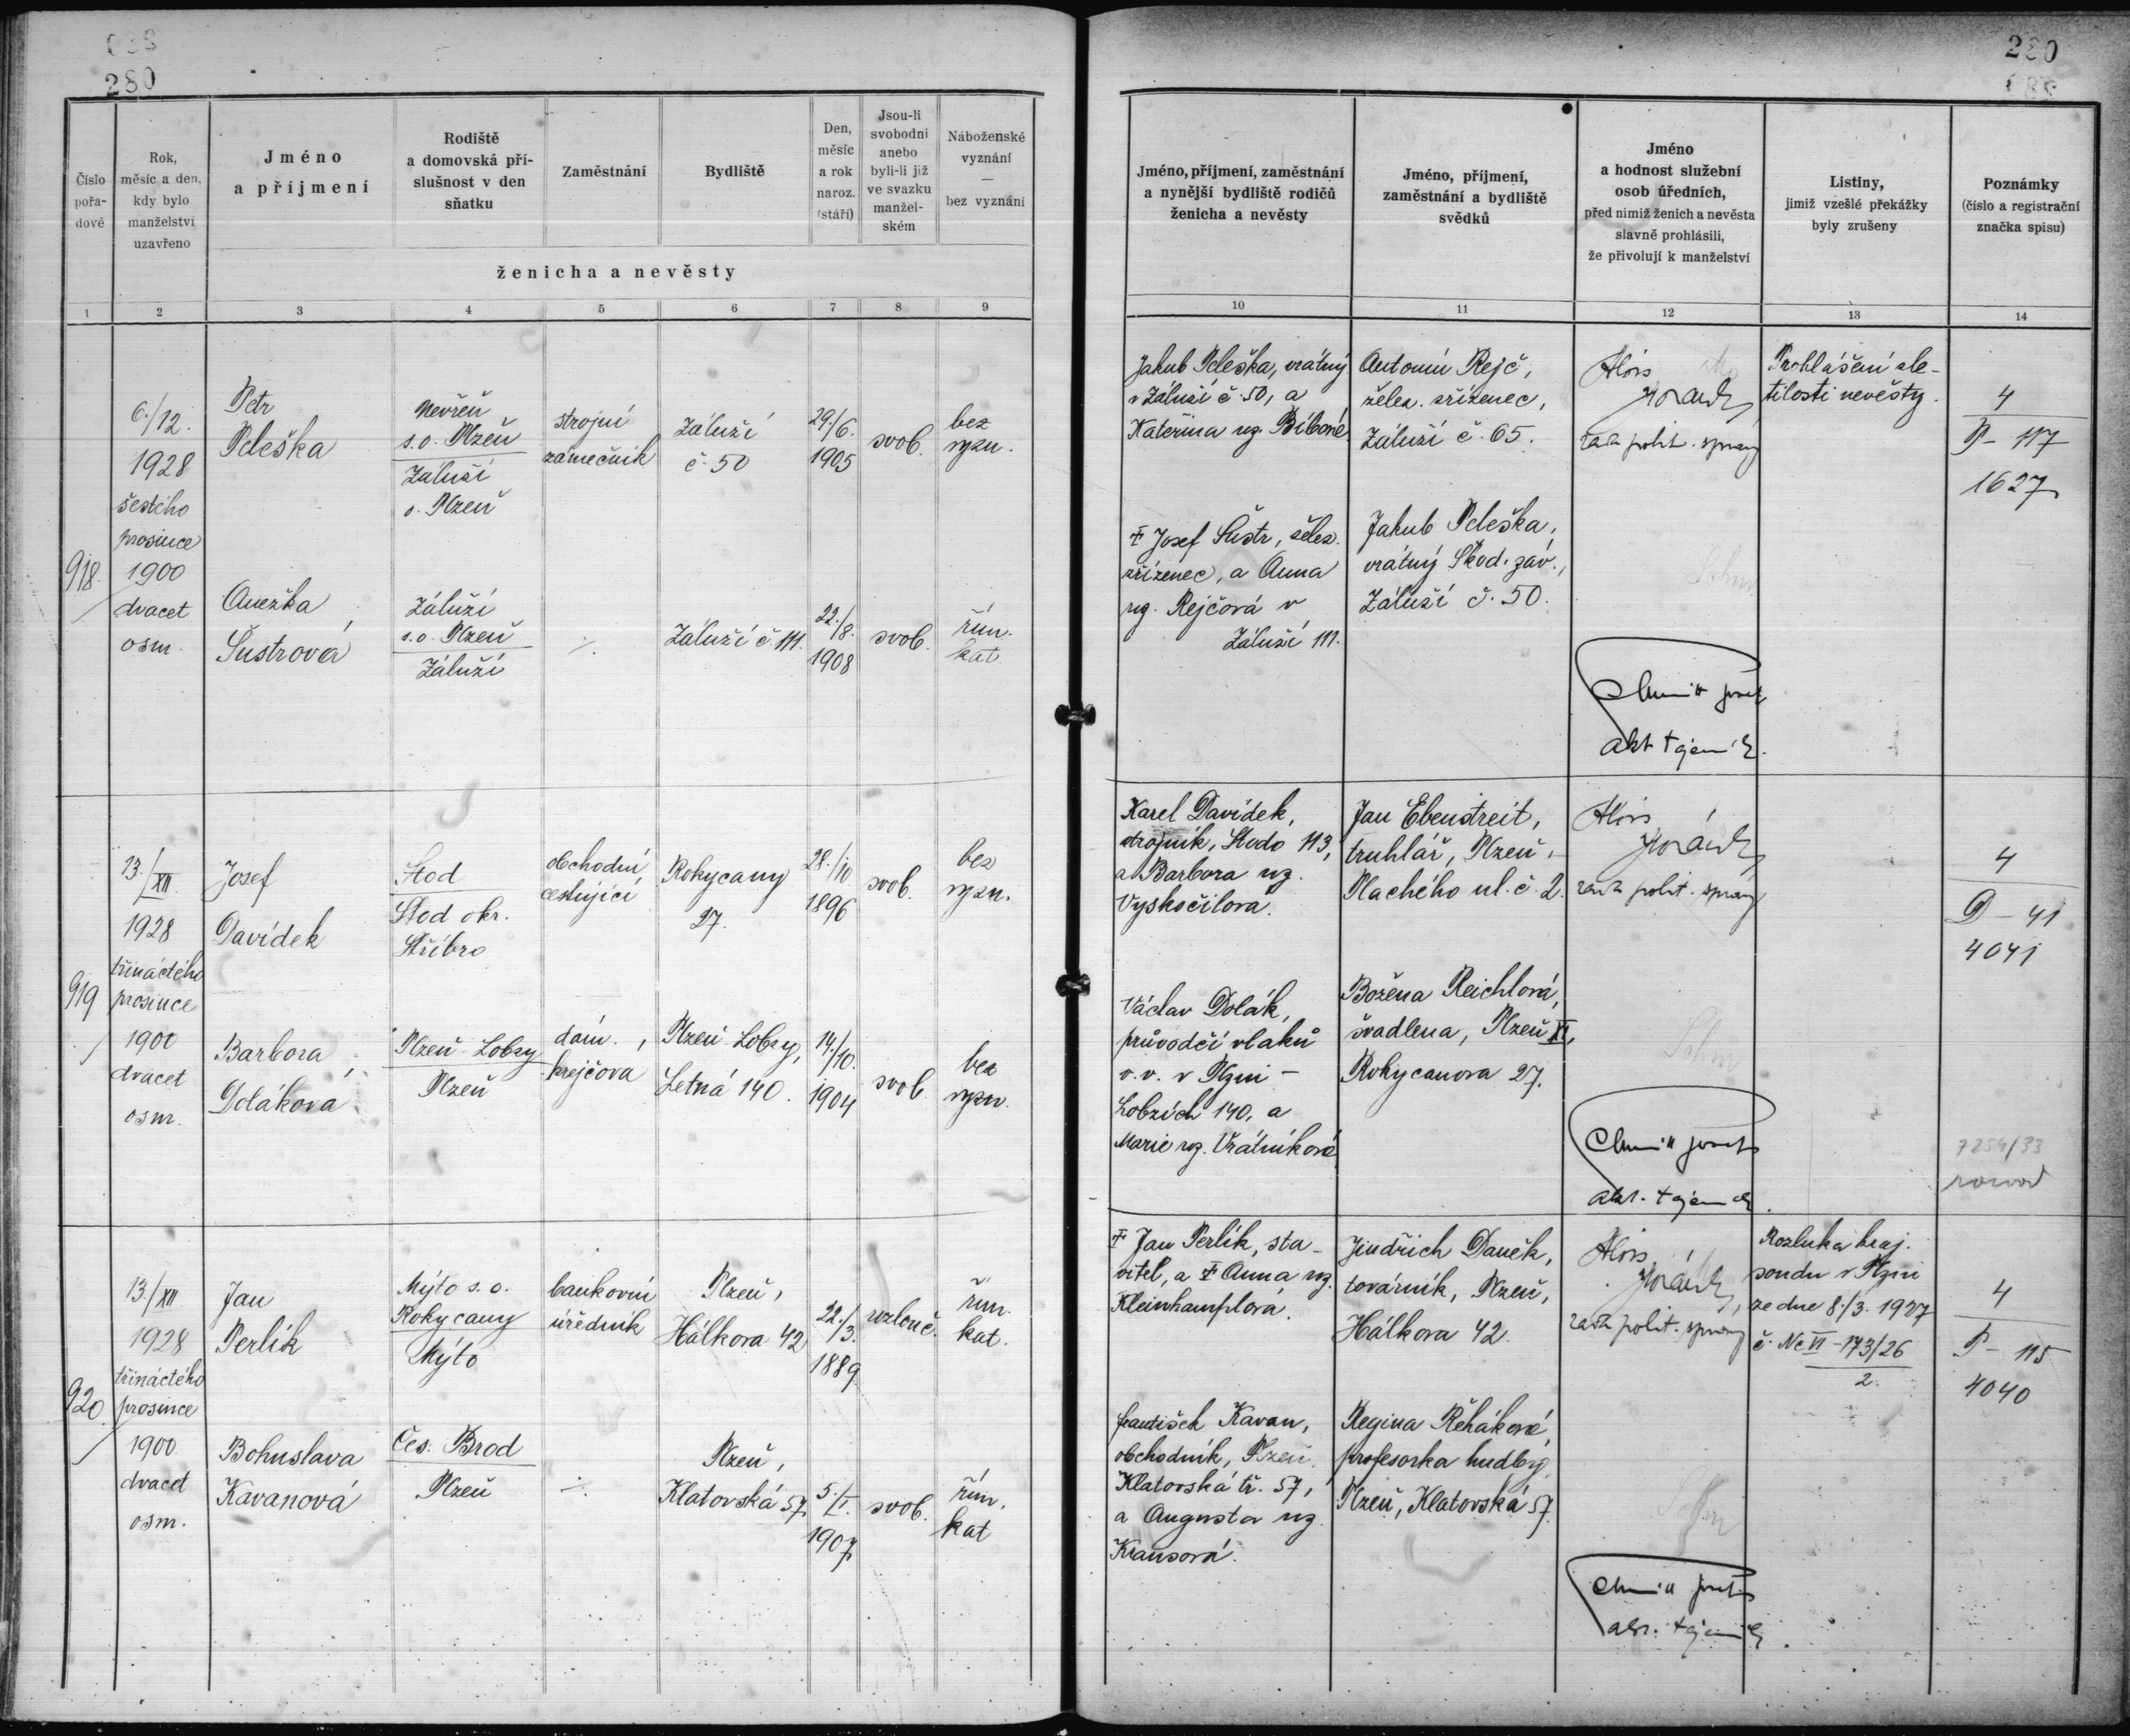 280
Číslo pořa- dové
Rok, měsíc a den, kdy bylo manželství uzavřeno
Jméno a příjmení
Rodiště a domovská pří- slušnost v den sňatku
Zaměstnání
Bydliště
Den, měsíc a rok naroz. (stáří)
Jsou-li svobodni anebo byli-li již ve svazku manžel- ském
Náboženské vyznání — bez vyznání
ženicha a nevěsty
1 2 3 4 5 6 7 8 9
918.
6./12.
1928
šestého
prosince
1900
dvacet
osm.
Petr
Peleška
Nevřeň
s.o. Plzeň
Záluží
o. Plzeň
strojní
zámečník
Záluží
č. 50
29./6.
1905
svob.
bez
vyzn.
Anežka
Šustrová
Záluží
s.o. Plzeň
Záluží
Záluží č. 111.
22./8.
1908
svob.
řím.
kat.
919
13./XII.
1928
třináctého
prosince
1900
dvacet
osm.
Josef
Davídek
Stod
Stod okr.
Stříbro
obchodní
cestující
Rokycany
27.
28./10
1896
svob.
bez
vyzn.
Barbora
Dolákova
Plzeň-Lobzy
Plzeň
dám.
krejčova
Plzeň-Lobzy,
Letná 140.
14./10.
1904
svob.
bez
vyzn.
920
13./XII
1928
třináctého
prosince
1900
dvacet
osm.
Jan
Perlík
Mýto s.o.
Rokycany
Mýto
bankovní
úředník
Plzeň,
Hálkova 42
22./3.
1889
rozlouč.
řím.
kat.
Bohuslava
Kavanová
Čes. Brod
Plzeň
Plzeň,
Klatovská 57
5./I.
1907
svob.
řím.
kat
280
Jméno, příjmení, zaměstnání a nynější bydliště rodičů ženicha a nevěsty
Jméno, příjmení, zaměstnání a bydliště svědků
Jméno a hodnost služební osob úředních, před nimiž ženich a nevěsta slavně prohlásili, že přivolují k manželství
Listiny, jimiž vzešlé překážky byly zrušeny
Poznámky (číslo a registrační značka spisu)
10 11 12 13 14
Jakub Peleška, vrátný
v Záluží č. 50, a
Kateřina roz. Bíbová.
Antonín Rejč,
želez. zřízenec,
Záluží č. 65.
Alois
Horák
rada polit. správy
Prohlášení zle-
tilosti nevěsty.
4
P - 117
1627
† Josef Šustr, želez.
zřízenec, a Anna
roz. Rejčová v
Záluží 111.
Jakub Peleška,
vrátný Škod. záv.,
Záluží č. 50.
akt. tajemník.
Karel Davídek,
strojník, Stodo 113,
a Barbora roz.
Vyskočilova.
Jan Ebenstreit,
truhlář, Plzeň,
Plachého ul. č. 2.
Alois
Horák
rada polit. správy
4
D - 41
4041
Václav Dolák,
průvodčí vlaků
v.v. v Plzni -
Lobzích 140, a
Marie roz. Vrátníková
Božena Reichlová,
švadlena, Plzeň XI,
Rokycanova 27.
akt. tajemník.
7254/33
rozvod
† Jan Perlík, sta-
vitel, a † Anna roz.
Kleinhamplova.
Jindřich Daněk,
továrník, Plzeň,
Hálkova 42.
Alois
Horák,
rada polit. správy
Rozluka kraj.
soudu v Plzni
ze dne 8./3. 1927
č. Nc VI - 173/26
2.
4
P - 115
4040
František Kavan,
obchodník, Plzeň.
Klatovská tř. 57,
a Augusta roz.
Krausová.
Regina Řeháková,
profesorka hudby,
Plzeň, Klatovská 57.
akt. tajemník.